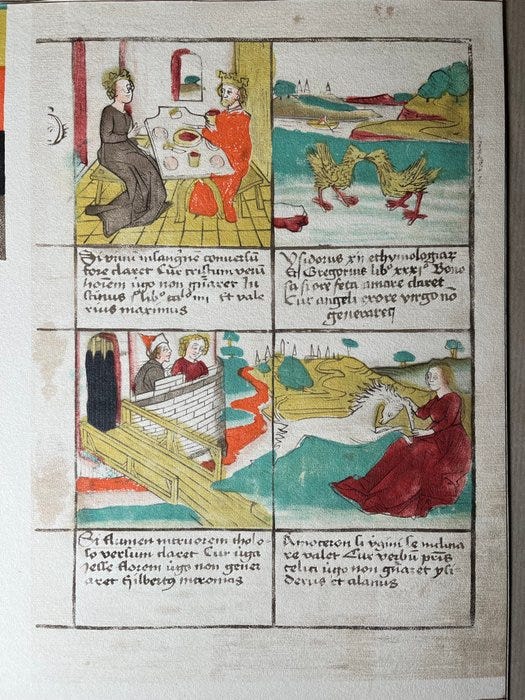 Si vinū insangīne conversū
claret Cur verū
hoīem v̄go non gn̄aret Iu
stinus libº iiii Et vale
rius maximus
Ysidorus xii ethymologiar
Et Gregorius libº xxxiº Bono
sa si ore feta claret
Cur angeli exore virgo nō
generaret
Si flumen incruorem tholo-
so versum claret Cur v̄ga
Iesse florem v̄go non gener
aret incronicis
si v̄gini se inclina
re valet Cur verbū pris
celici v̄go non gn̄aret ysi
derus et alanus